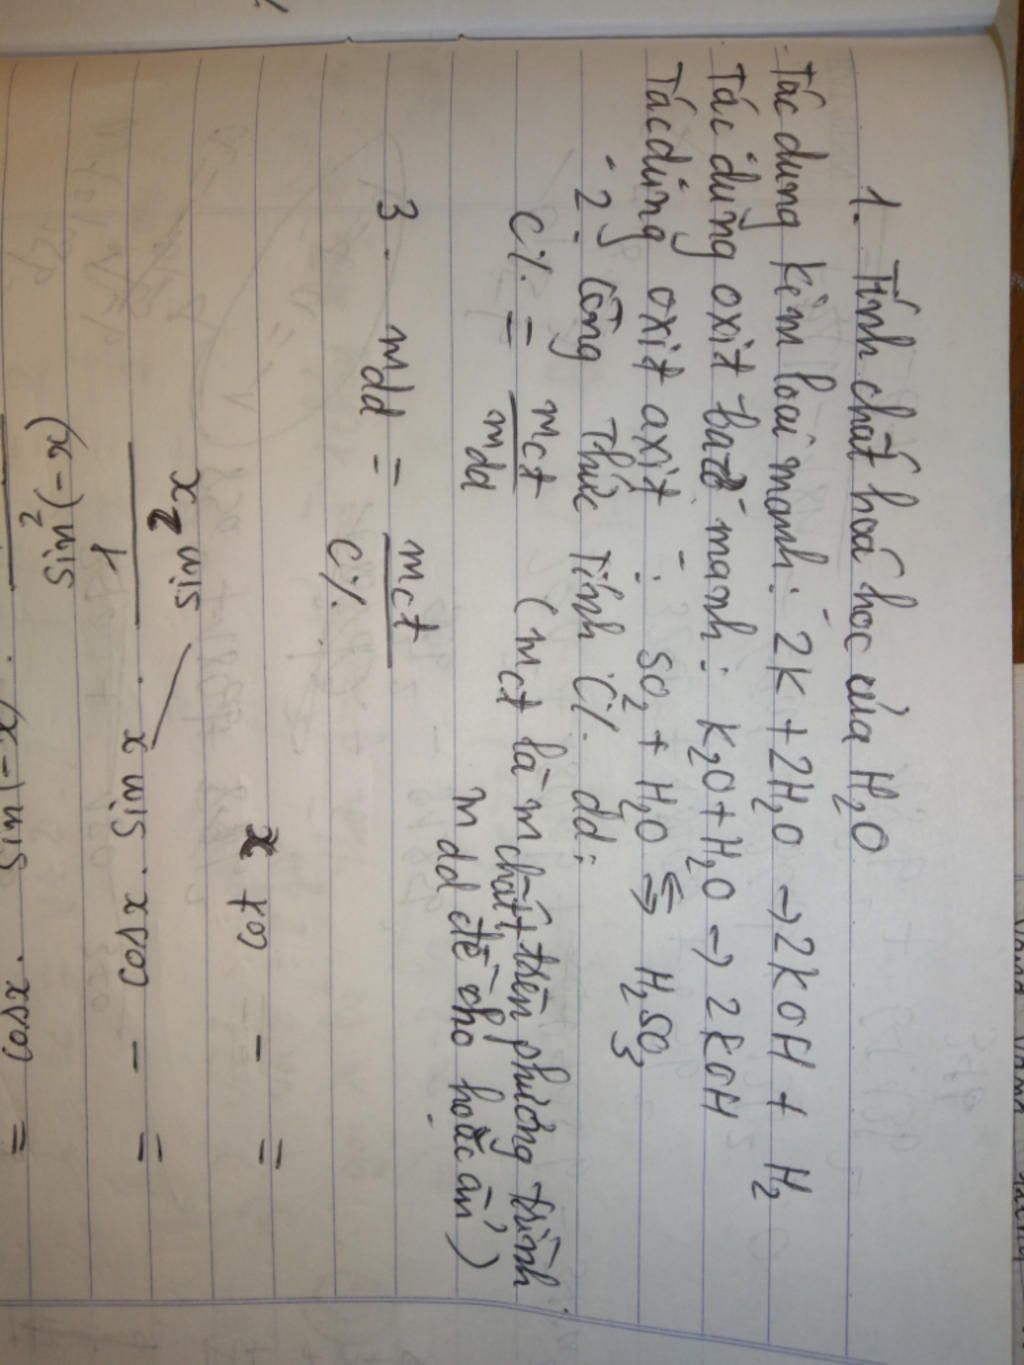 1. Tính chất hoá học của H₂O
Tác dụng kim loại mạnh: 2K + 2H₂O → 2KOH + H₂
Tác dụng oxit bazơ mạnh: K₂O + H₂O → 2KOH
Tác dụng oxit axit : SO₂ + H₂O ⇌ H₂SO₃
2. Công thức tính C% dd:
C% = mct / mdd (mct là m chất trên phương trình
mdd đề cho hoặc ẩn)
3. mdd = mct / C%
= - cot x
= - cosx . sin x . 1 / sin²x
= cosx . sin(-x) .
sin²(-x)